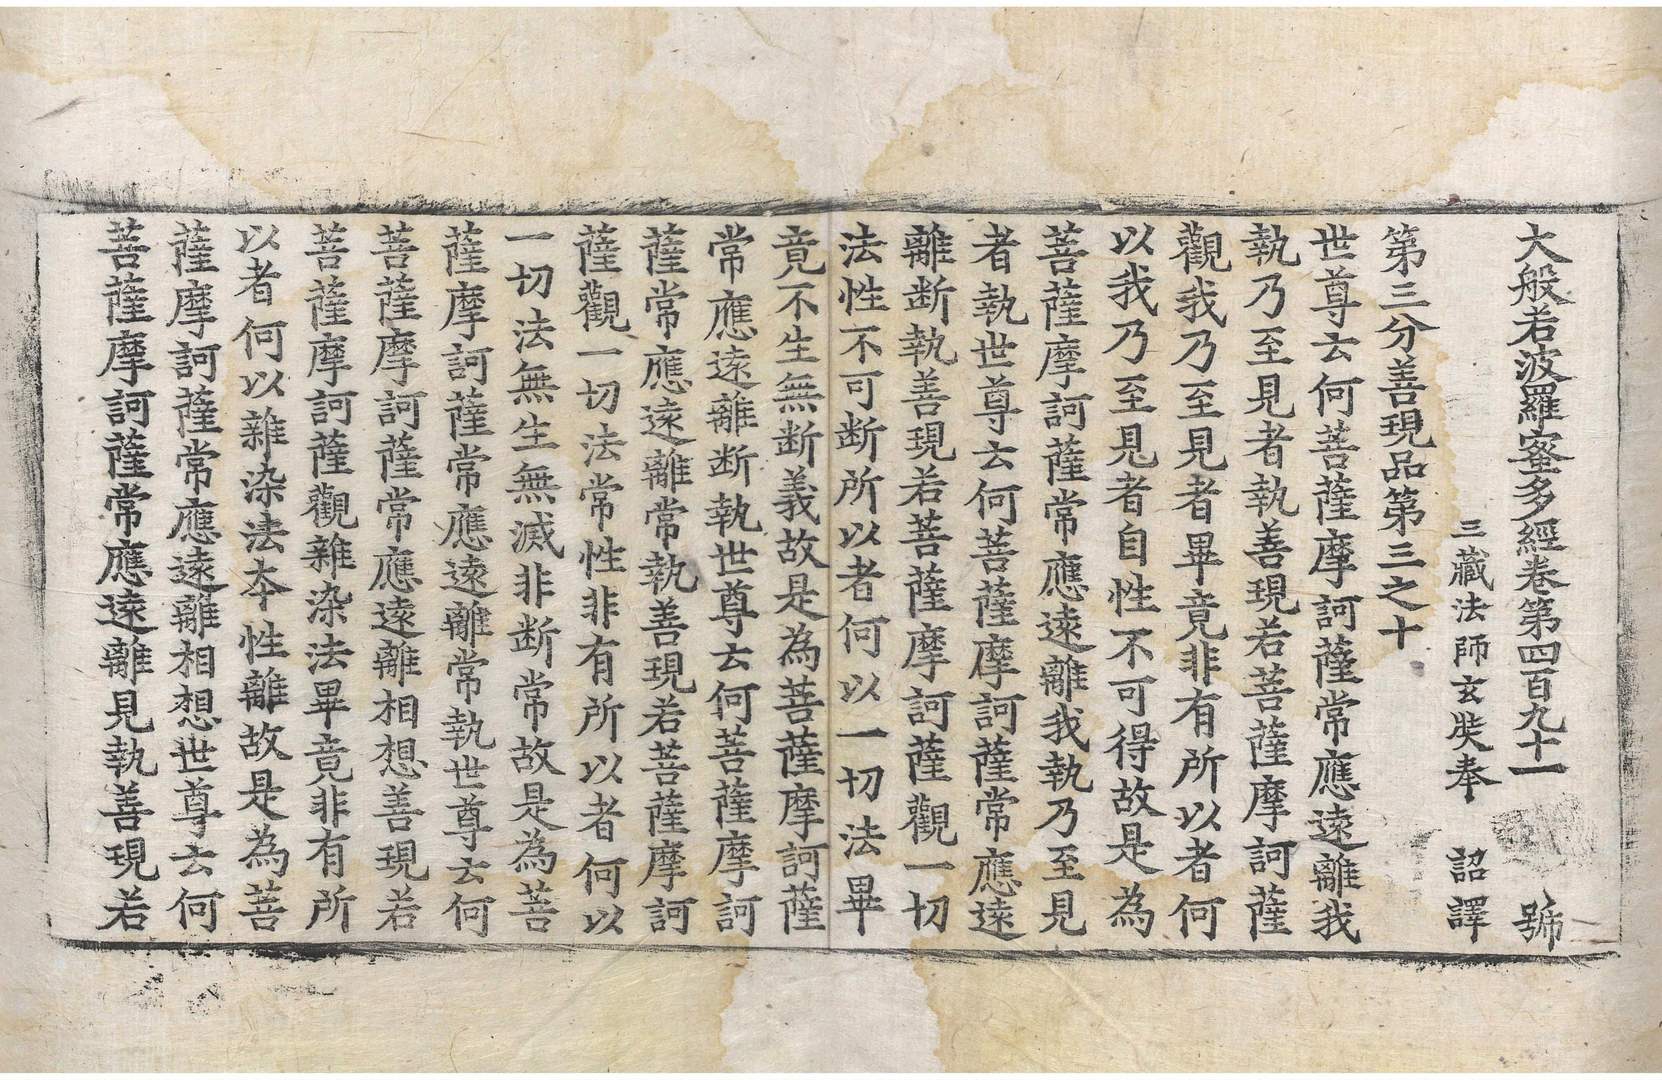 大般若波羅蜜多經卷第四百九十一 號
三藏法師玄奘奉 詔譯
第三分善現品第三之十
世尊云何菩薩摩訶薩常應遠離我
執乃至見者執善現若菩薩摩訶薩
觀我乃至見者畢竟非有所以者何
以我乃至見者自性不可得故是為
菩薩摩訶薩常應遠離我執乃至見
者執世尊云何菩薩摩訶薩常應遠
離断執善現若菩薩摩訶薩觀一切
法性不可断所以者何以一切法畢
竟不生無断義故是為菩薩摩訶薩
常應遠離断執世尊云何菩薩摩訶
薩常應遠離常執善現若菩薩摩訶
薩觀一切法常性非有所以者何以
一切法無生無滅非断常故是為菩
薩摩訶薩常應遠離常執世尊云何
菩薩摩訶薩常應遠離相想善現若
菩薩摩訶薩觀雜染法畢竟非有所
以者何以雜染法本性離故是為菩
薩摩訶薩常應遠離相想世尊云何
菩薩摩訶薩常應遠離見執善現若